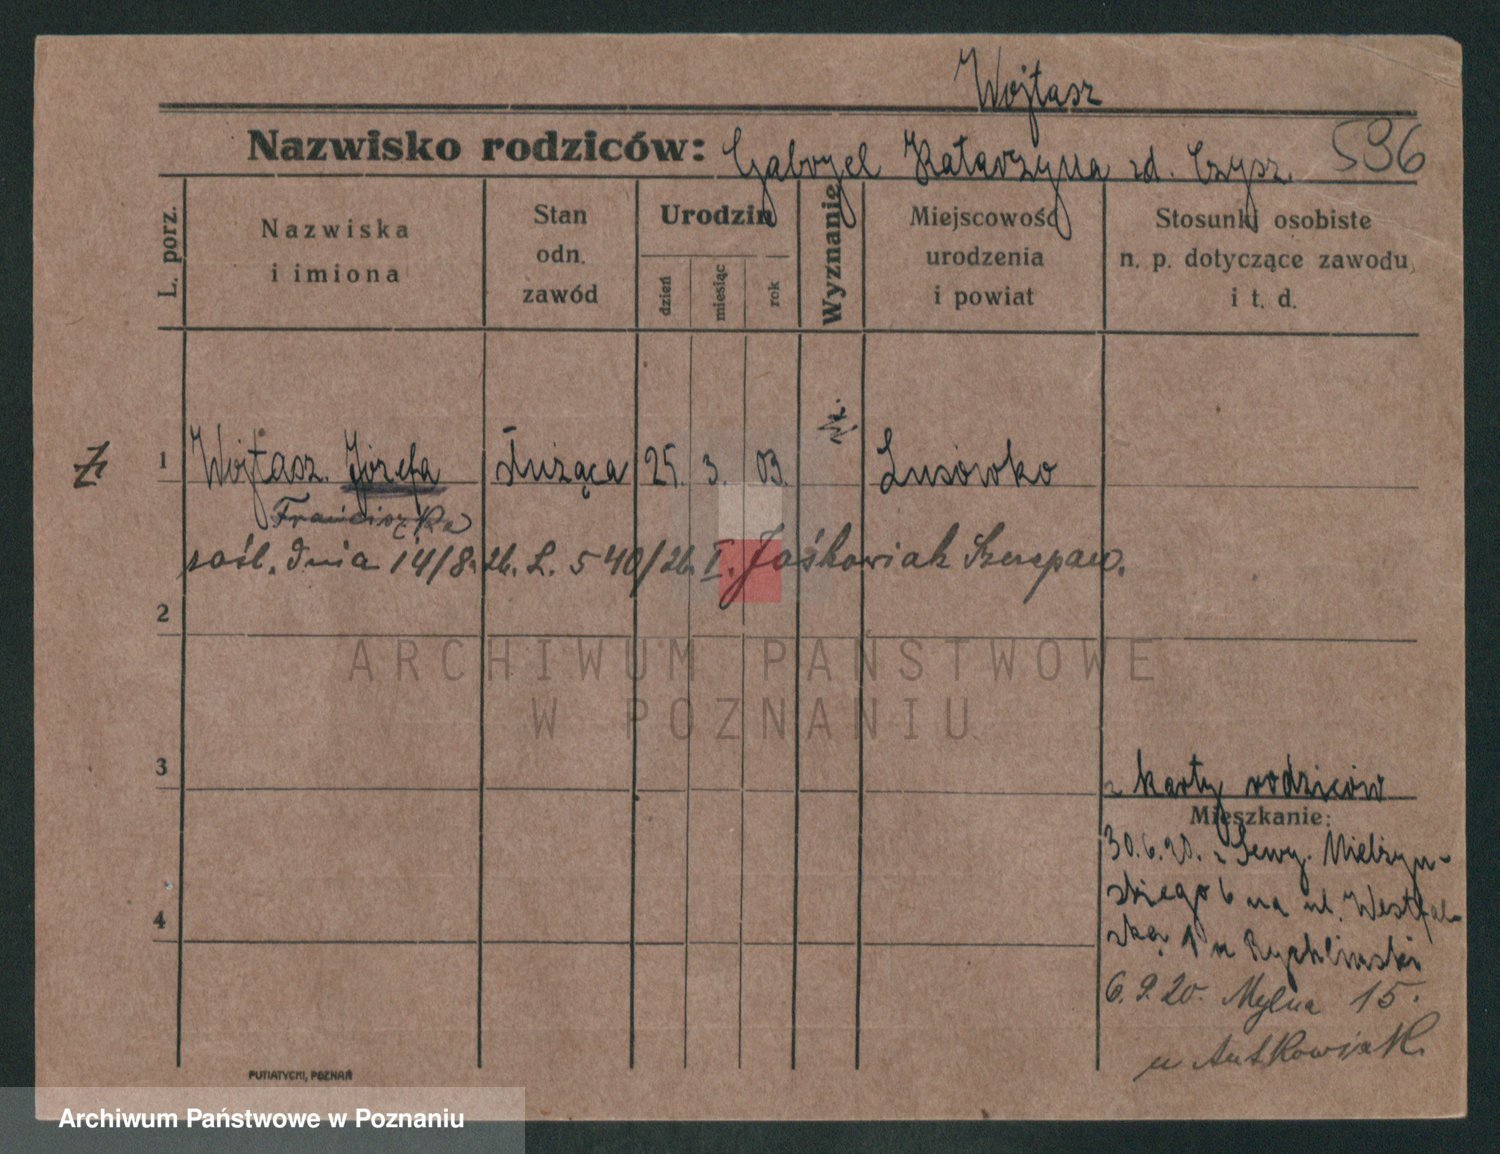 Wojtasz
Nazwisko rodziców: Gabryel Katarzyna zd. Czysz.
596
L. porz.
Nazwiska
i imiona
Stan
odn.
zawód
Urodzin
dzień
miesiąc
rok
Wyznanie
Miejscowość
urodzenia
i powiat
Stosunki osobiste
n. p. dotyczące zawodu
i t. d.
Ż
1 Wojtasz. Józefa służąca 25. 3. 03. Lusówko
Franciszka
zaśl. dnia 14/8. 26. L. 540/26. I. Jaśkowiak Szczepan.
2
ARCHIWUM PAŃSTWOWE
W POZNANIU
3
z karty rodziców
Mieszkanie:
30.6.20. z Sewy. Mielżyń-
skiego 6 na ul. Westfal-
ską 1 u Rychlinski
4
6. 9. 20. Mylna 15.
u Antkowiak.
PUTIATYCKI, POZNAŃ
Archiwum Państwowe w Poznaniu